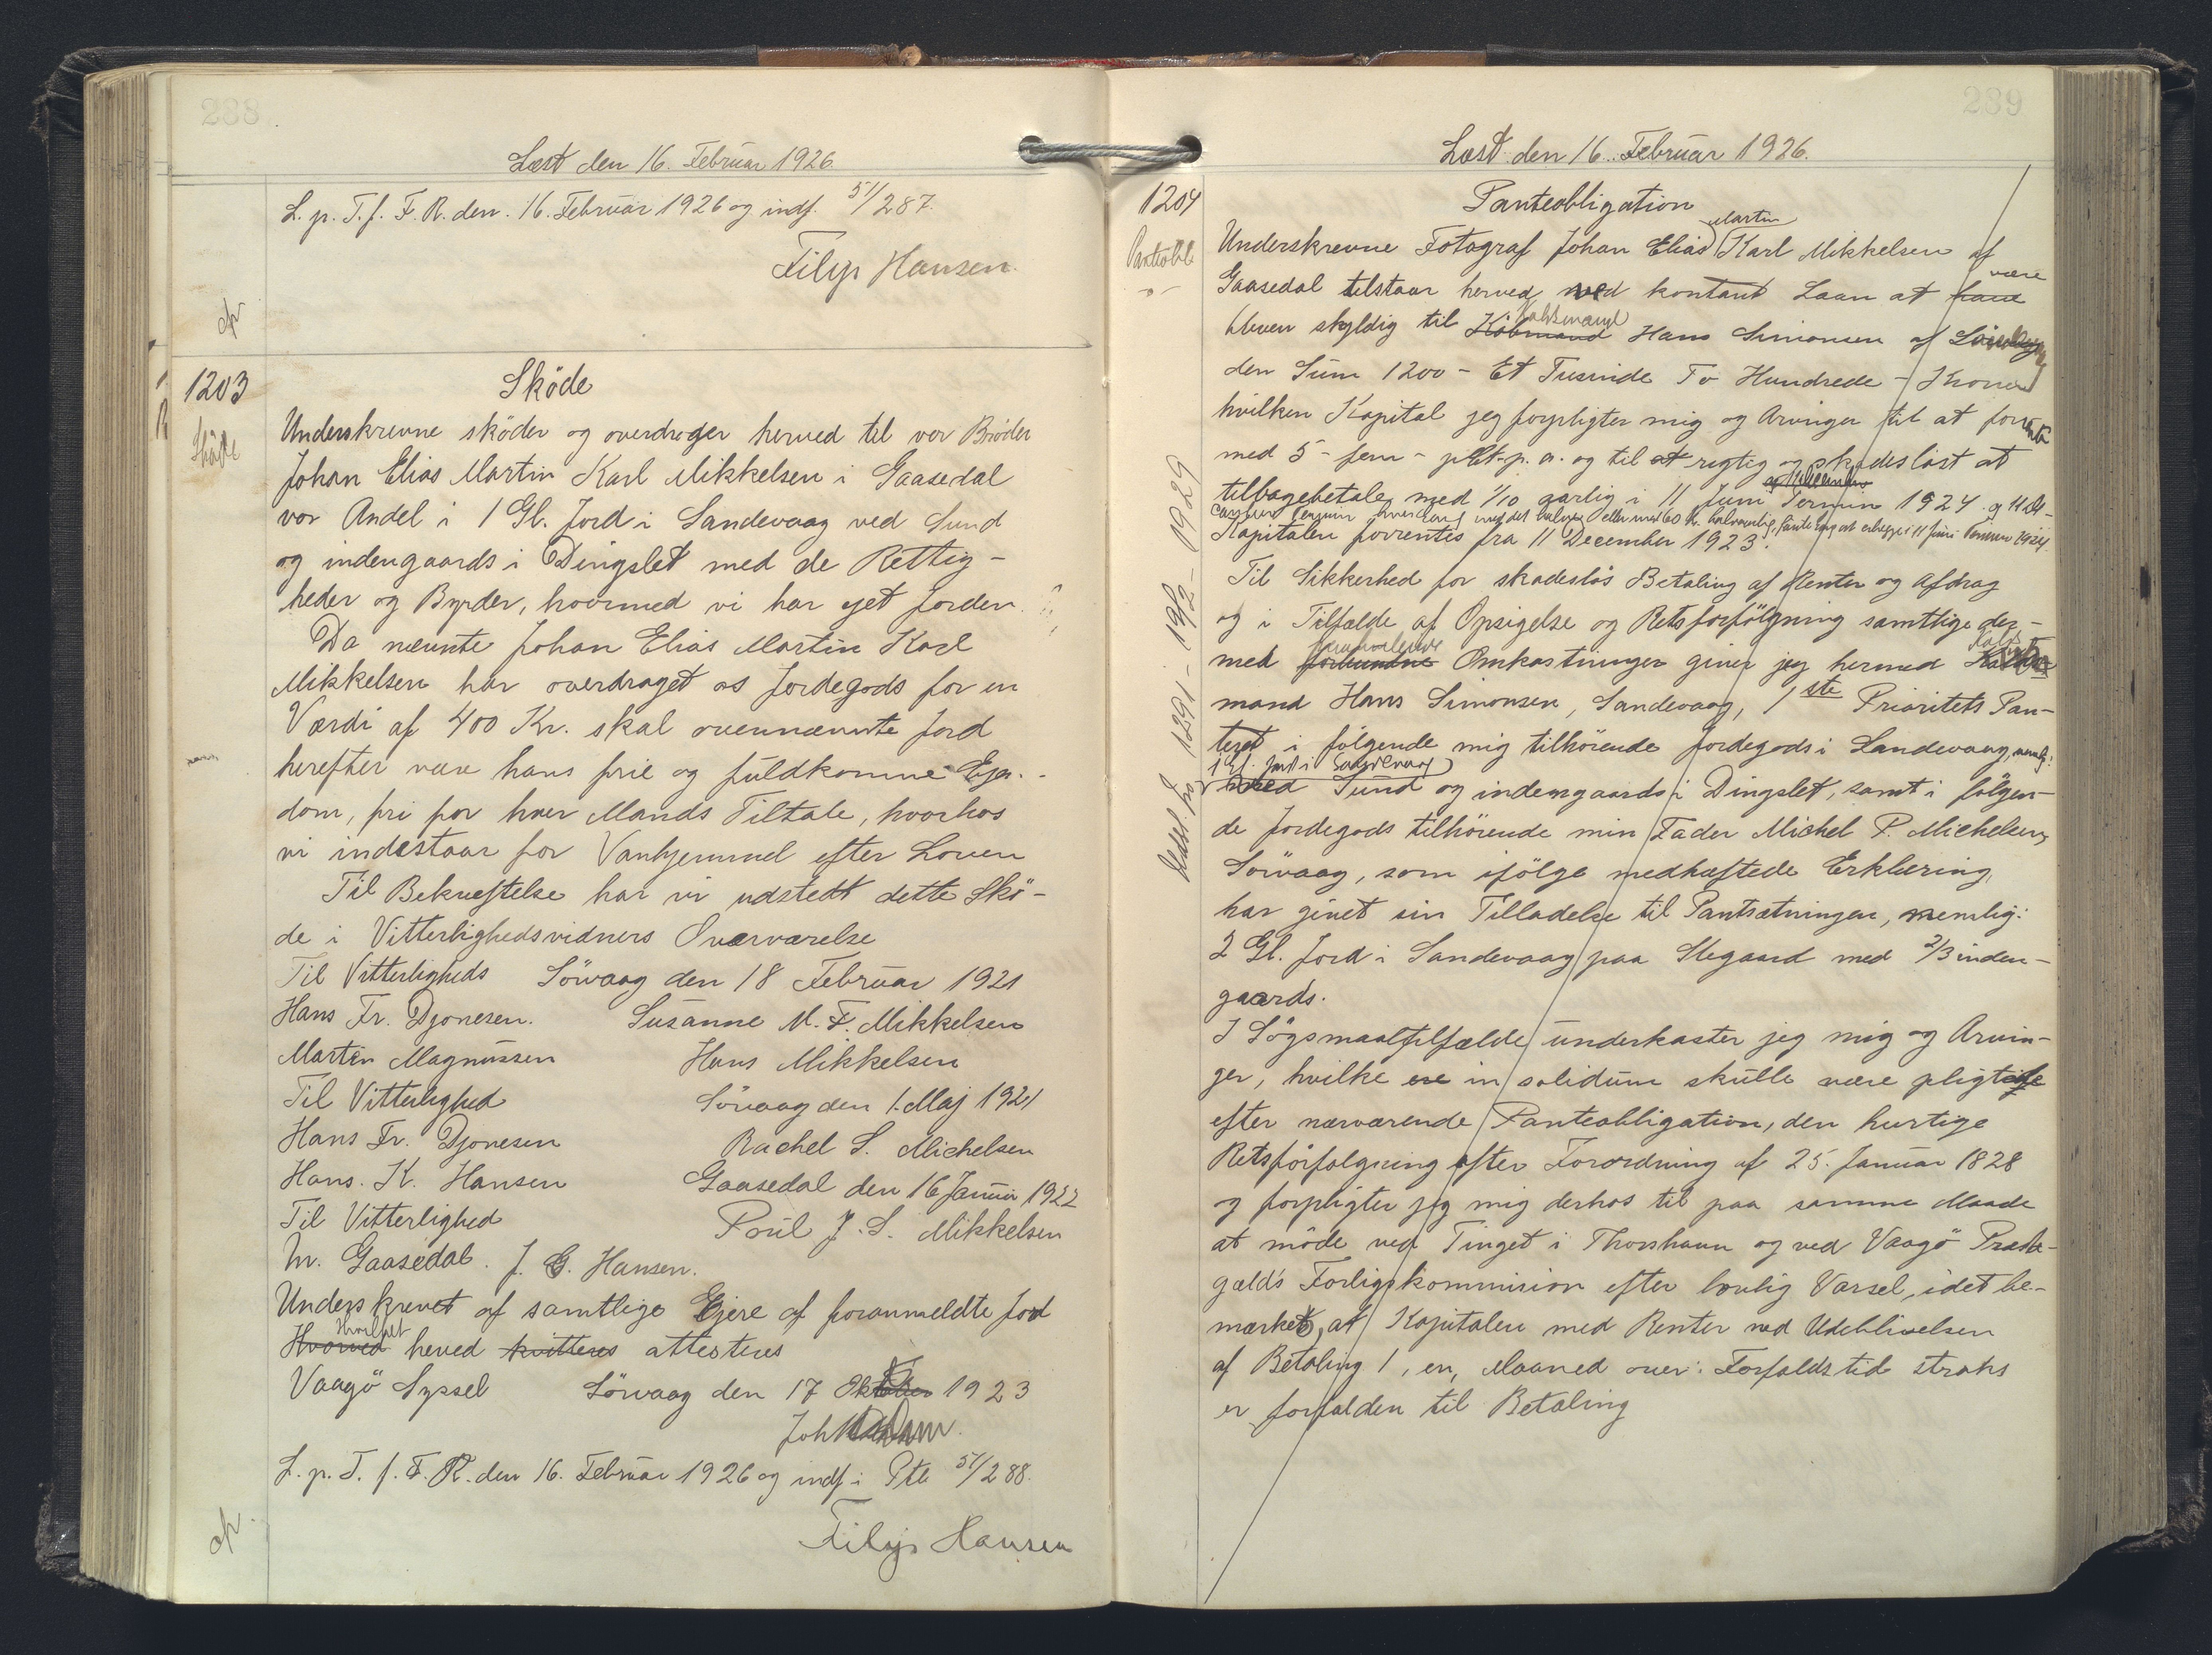 288
Læst den 16. Februar 1926.
L. p. T. f. F. R. den 16. Februar 1926 og indf. 51/287.
Filip Hansen.
1203
Sköde
Sköde
Underskrevne sköder og overdrager herved til vor Broder
Johan Elias Martin Karl Mikkelsen i Gaasedal
vor Andel i 1 Gl. Jord i Sandevaag ved Sund
og indengaards i Dingslet med de Rettig-
heder og Byrder, hvormed vi har ejet Jorden.
Da nævnte Johan Elias Martin Karl
Mikkelsen har overdraget os Jordegods for en
Værdi af 400 Kr. skal ovennævnte Jord
herefter være hans frie og fuldkomne Ejen-
dom, fri for hver Mands Tiltale, hvorhos
vi indestaar for Vanhjemmel efter Loven
Til Bekræftelse har vi udstedt dette Skö-
de i Vitterlighedsvidners Overværelse
Til Vitterligheds Sörvaag den 18 Februar 1921
Hans Fr. Djonesen. Susanne M. F. Mikkelsen
Martin Magnussen Hans Mikkelsen
Til Vitterlighed Sörvaag den 1. Maj 1921
Hans Fr. Djonesen Rachel S. Michelsen
Hans. K. Hansen Gaasedal den 16 Januar 1922
Til Vitterlighed Poul J. S. Mikkelsen
M. Gaasedal. J. G. Hansen.
Underskrevet af samtlige Ejere af foranmeldte Jord
Hvilket
Hvorved herved kvitteres attesteres
Vaagö Syssel Sörvaag den 17 1923
Joh
L. p. T. f. F. R. den 16. Februar 1926 og indf i Ptb 51/288.
Filip Hansen
239
Læst den 16. Februar 1926.
1204
Panteobl
Panteobligation
Martin
Underskrevne Fotograf Johan Elias Karl Mikkelsen af
være
Gaasedal tilstaar herved ved kontant Laan at have
bleven skyldig til Köbmand Hans Simonsen af
den Sum 1200 - Et Tusinde To Hundrede - Kroner
hvilken Kapital jeg forpligter mig og Arvinger til at forrente
med 5 - fem - pCt. p. a. og til at rigtig og skadeslöst at
tilbagebetale med 1/10 aarlig i 11 Juni Termin 1924 og 11 De-
cember Termin med det halve eller med 60 Kr. halvaarlig, at erlægge i 11 Juni Termin 1924.
Kapitalen forrentes fra 11 December 1923.
Til Sikkerhed for skadeslös Betaling af Renter og Afdrag
og i Tilfælde af Opsigelse og Retsforfölgning samtlige der-
med forbundne Omkostninger giver jeg hermed
mand Hans Simonsen, Sandevaag, 1ste Prioritets Pan-
teret i fölgende mig tilhörende Jordegods i Sandevaag, nemlig:
1 Gl. Jord i Sandevaag
ved Sund og indengaards i Dingslet, samt i fölgen-
de Jordegods tilhörende min Fader Michel P. Michelsen,
Sörvaag, som ifölge medhæftede Erklæring,
har givet sin Tilladelse til Pantsætningen, nemlig:
2 Gl. Jord i Sandevaag paa Stegaard med 2/3 inden-
gaards.
I Sögsmaalstilfælde underkaster jeg mig og Arvin-
ger, hvilke ere in solidum skulle være pligtige
efter nærværende Panteobligation, den hurtige
Retsforfölgning efter Forordning af 25. Januar 1828
og forpligter jeg mig derhos til paa samme Maade
at möde ved Tinget i Thorshavn og ved Vaagö Præste-
gælds Forligskommision efter lovlig Varsel, idet be-
mærkes, at Kapitalen med Renter ved Udeblivelsen
af Betaling 1, en, Maaned over Forfaldstid straks
er forfalden til Betaling